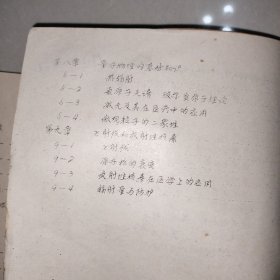 第八章 量子物理的基础知识
8-1 热辐射
8-2 氢原子光谱 玻尔氢原子理论
8-3 激光及其在医学中的应用
8-4 微观粒子的二象性
第九章 x射线和放射性核素
9-1 x射线
9-2 原子核的衰变
9-3 放射性核素在医学上的应用
9-4 辐射量与防护